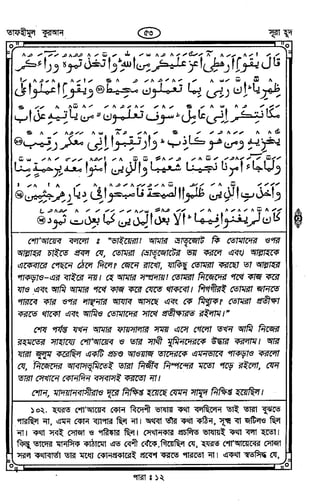 তাফহীমুল কুরআন
৫৩
সূরা হূদ
قَالَ يٰقَوْمِ اَرَهْطِىْٓ اَعَزُّ عَلَيْكُمْ مِّنَ اللّٰهِ ؕ وَاتَّخَذْتُمُوْهُ وَرَآءَكُمْ
ظِهْرِيًّا ؕ اِنَّ رَبِّىْ بِمَا تَعْمَلُوْنَ مُحِيْطٌ ﴿۹۲﴾ وَيٰقَوْمِ اعْمَلُوْا عَلٰى
مَكَانَتِكُمْ اِنِّىْ عَامِلٌ ؕ سَوْفَ تَعْلَمُوْنَ ۙ مَنْ يَّاْتِيْهِ عَذَابٌ
يُّخْزِيْهِ وَمَنْ هُوَ كَاذِبٌ ؕ وَارْتَقِبُوْٓا اِنِّىْ مَعَكُمْ رَقِيْبٌ ﴿۹۳﴾
وَلَمَّا جَآءَ اَمْرُنَا نَجَّيْنَا شُعَيْبًا وَّالَّذِيْنَ اٰمَنُوْا مَعَهٗ بِرَحْمَةٍ مِّنَّا
وَاَخَذَتِ الَّذِيْنَ ظَلَمُوا الصَّيْحَةُ فَاَصْبَحُوْا فِىْ دِيَارِهِمْ جٰثِمِيْنَ ﴿۹۴﴾
كَاَنْ لَّمْ يَغْنَوْا فِيْهَا ؕ اَلَا بُعْدًا لِّمَدْيَنَ كَمَا بَعِدَتْ ثَمُوْدُ ﴿۹۵﴾
শো'আয়েব বললো : "ভাইয়েরা! আমার ভ্রাতৃজোট কি তোমাদের ওপর
আল্লাহর চাইতে প্রবল যে, তোমরা (ভ্রাতৃজোটের ভয় করলে এবং) আল্লাহকে
একেবারে পেছনে ঠেলে দিলে। জেনে রাখো, যাকিছু তোমরা করছো তা আল্লাহর
পাকড়াও-এর বাইরে নয়। হে আমার সম্প্রদায়! তোমরা নিজেদের পথে কাজ করে
যাও এবং আমি আমার পথে কাজ করে যেতে থাকবো। শিগগীরই তোমরা জানতে
পারবে কার ওপর লাঞ্ছনার আযাব আসছে এবং কে মিথ্যুক? তোমরা প্রতীক্ষা
করতে থাকো এবং আমিও তোমাদের সাথে প্রতীক্ষারত রইলাম।"
শেষ পর্যন্ত যখন আমার ফায়সালার সময় এসে গেলো তখন আমি নিজের
রহমতের সাহায্যে শো'আয়েব ও তার সাথী মুমিনদেরকে উদ্ধার করলাম। আর
যারা জুলুম করেছিল একটি প্রচণ্ড আওয়াজ তাদেরকে এমনভাবে পাকড়াও করলো
যে, নিজেদের আবাসভূমিতেই তারা নির্জীব নিস্পন্দের মতো পড়ে রইলো, যেন
তারা সেখানে কোনদিন বসবাসই করতো না।
শোন, মাদয়ানবাসীরাও দূরে নিক্ষিপ্ত হয়েছে যেমন সামূদ নিক্ষিপ্ত হয়েছিল।
১০২. হযরত শো'আয়েব কোন বিদেশী ভাষায় কথা বলছিলেন তাই তারা বুঝতে
পারছিল না, এমন কোন ব্যাপার ছিল না। অথবা তাঁর কথা কঠিন, সূক্ষ্ম বা জটিলও ছিল
না। কথা সবই সোজা ও পরিষ্কার ছিল। সেখানকার প্রচলিত ভাষায়ই কথা বলা হতো।
কিন্তু তাদের মানসিক কাঠামো এত বেশী বেঁকে গিয়েছিল যে, হযরত শো'আয়েবের সোজা
সরল কথাবার্তা তার মধ্যে কোনপ্রকারেই প্রবেশ করতে পারতো না। একথা স্বতসিদ্ধ যে,
পারা : ১২